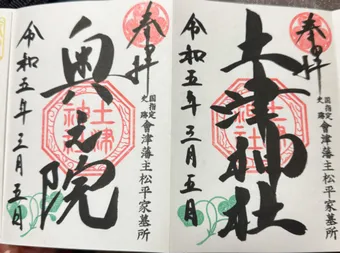 奉拝
土津神社
土津神社
国指定史跡
會津藩主松平家墓所
令和五年三月五日
奉拝
奥之院
土津神社
国指定史跡
會津藩主松平家墓所
令和五年三月五日